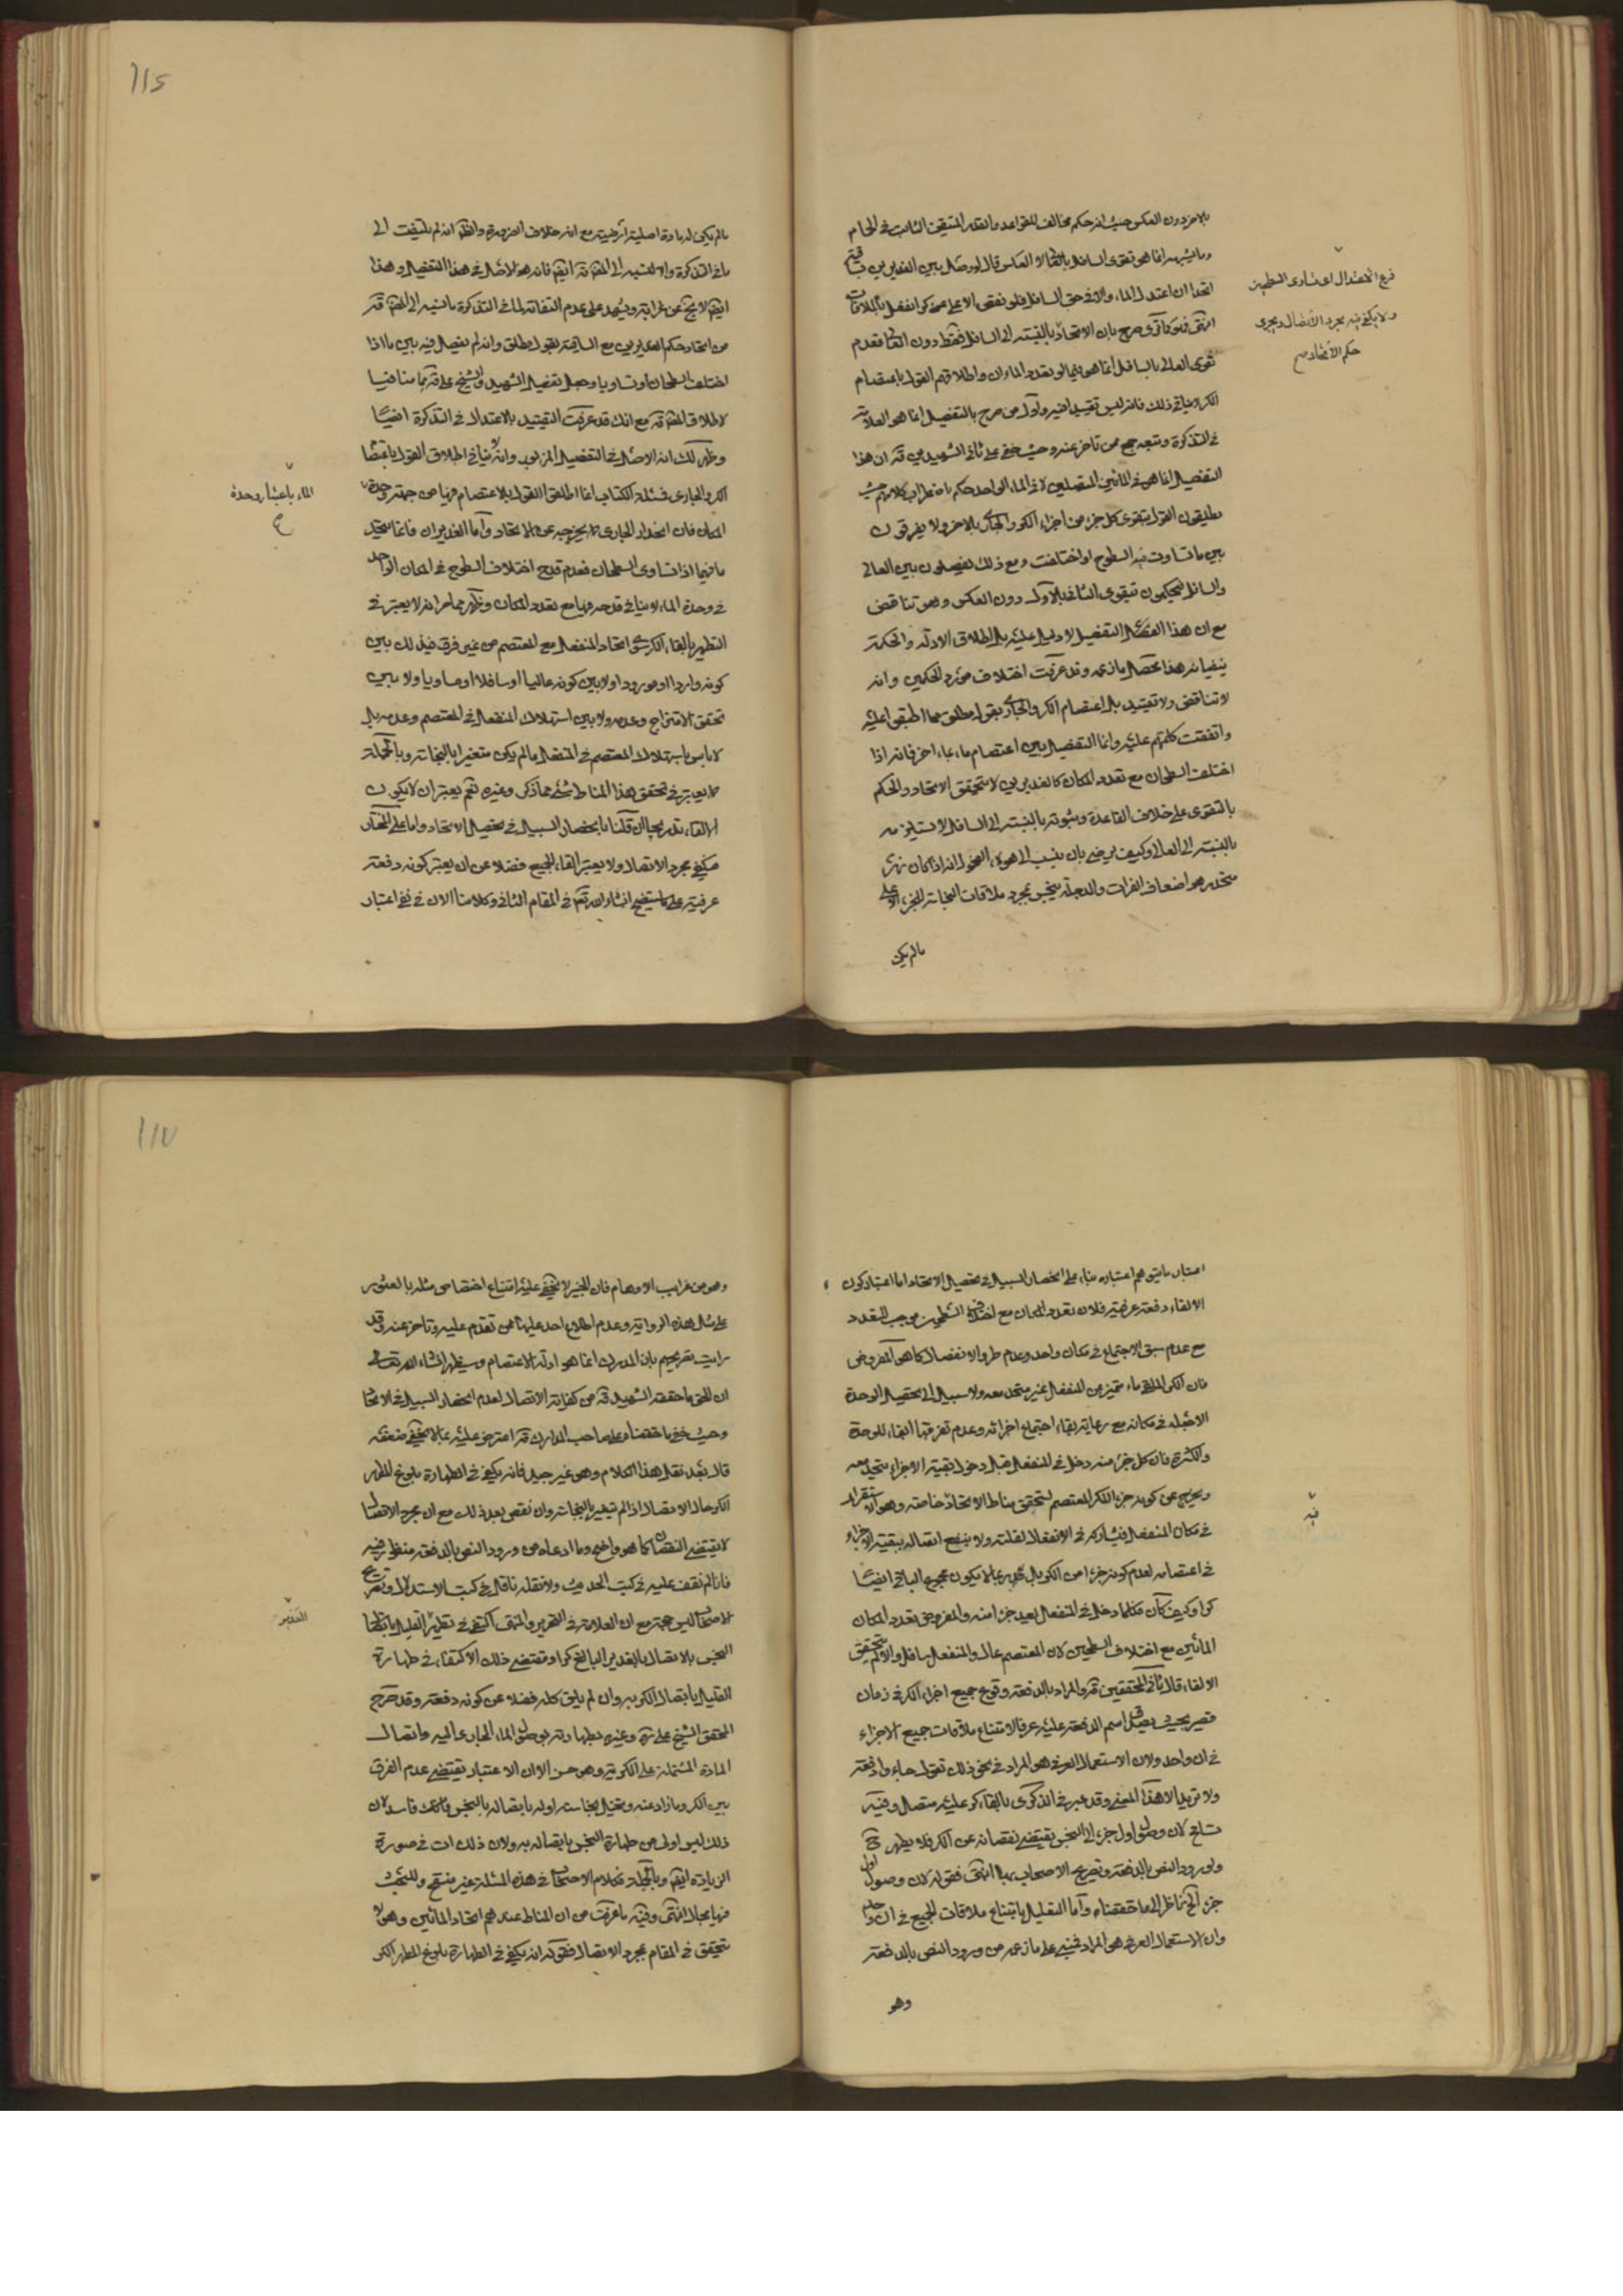 بالاخر دون العكس حيث انه حكم مخالف للقواعد والقدر المتيقن الثابت في الحمام
وما يشبهه انما هو تقوى السافل بالعالي لا العكس قال لو وصل بين الغديرين بساقية
اتحدا ان اعتدل الماء والا في حق السافل فلو نقص الاعلى عن كر انفعل بالملاقات
انتهى فهو كما ترى صرح بان الاتحاد بالنسبة الى السافل فقط دون العالي فعدم
تقوى العالي بالسافل انما هو فيما لو تعدد الماءان واطلاقهم القول باعتصام
الكر لا ينافي ذلك فانه ليس تقييدا فيه واول من صرح بالتفصيل انما هو العلامة
في التذكرة وتبعه جمع ممن تاخر عنه وحيث خفي على ثاني الشهيدين قه ان هذا
التفصيل انما هو في المائين المتصلين لا في الماء الواحد حكم باضطراب كلامهم حيث
يطلقون القول بتقوى كل جزء من اجزاء الكر والجاري بالاخر ولا يفرقون
بين ما تساوت فيه السطوح او اختلفت ومع ذلك يفصلون بين العالي
والسافل فيحكمون بتقوى الثاني بالاول دون العكس وهو تناقض
مع ان هذا التفصيل لا دليل عليه بل اطلاق الادلة والحكمة
ينفيانه هذا محصل ما زعمه وقد عرفت اختلاف مورد الحكمين وانه
لا تناقض ولا تقييد بل اعتصام الكر والجاري بقول مطلق مما اطبقوا عليه
واتفقت كلمتهم عليه وانما التفصيل بين اعتصام ماء بماء اخر فانه اذا
اختلفت السطحان مع تعدد المكان كالغديرين لا يتحقق الاتحاد والحكم
بالتقوى على خلاف القاعدة وثبوته بالنسبة الى السافل لا يستلزمه
بالنسبة الى العالي وكيف يرضى بان ينسب الى هؤلاء الفحول انه اذا كان نهر
منحدر هو اضعاف الفرات والدجلة ينجس بمجرد ملاقات النجاسة للجزء الاعلى
ما لم يكن
فرع الاعتدال اى تساوى السطحين
ولا يكفى فيه مجرد الاتصال ويجرى
حكم الاتحاد صح
115
ما لم يكن له مادة اصلية ارضية مع انه خلاف الضرورة والظ انه لم يلتفت الى
ما في التذكرة والا لنسبه الى العلامة قه ايضا فانه هو الاصل في هذا التفصيل وهذا
ايضا لا يخ عن غرابة ويشهد على عدم التفاته لما في التذكرة ما نسبه الى العلامة قه
من اتحاد حكم الغديرين مع الساقية بقول مطلق وانه لم يفصل فيه بين ما اذا
اختلفت السطحان او تساويا وجعل تفصيل الشهيد والشيخ علي قه هما منافيا
لاطلاق العلامة قه مع انك قد عرفت التقييد بالاعتدال في التذكرة ايضا
وظهر لك انه الاصل في التفصيل المزبور وانه لا ينافي اطلاق القول باعتصام
الكر والجاري فسئلة الكتاب انما اطلقوا القول بالاعتصام فيها من جهة وحدة
المكان فان انحدار الجاري لا يخرجه عن الاتحاد واما الغديران فانما يتحد
ما فيهما اذا تساوى السطحان فعدم قدح اختلاف السطوح في المكان الواحد
في وحدة الماء لا ينافي قدحه فيها مع تعدد المكان وظهر مما مر انه لا يعتبر في
التطهير بالقاء الكر سوى اتحاد المنفعل مع المعتصم من غير فرق في ذلك بين
كونه واردا او مورودا ولا بين كونه عاليا او سافلا او مساويا ولا بين
تحقق الامتزاج وعدمه ولا بين استهلاك المنفعل في المعتصم وعدمه بل
لا باس باستهلاك المعتصم في المنفعل ما لم يكن متغيرا بالنجاسة وبالجملة
لا يعتبر في تحقق هذا المناط شئ مما ذكر وغيره نعم يعتبر ان لا يكون
الالقاء تدريجيا ان قلنا بانحصار السبيل في تحصيل الاتحاد واما على المختار
فيكفى مجرد الاتصال ولا يعتبر القاء الجميع فضلا عن ان يعتبر كونه دفعة
عرفية على ما ستفتح انشاء الله تعالى في المقام الثاني وكلامنا الان في نفي اعتبار
الماء باعتبار وحدة
اعتبار ما يتوهم اعتباره بناء على انحصار السبيل في تحصيل الاتحاد اما اعتبار كون
الالقاء دفعة عرفية فلان تعدد المكان مع اختلاف السطحين موجب للتعدد
مع عدم سبق الاجتماع في مكان واحد وعدم طرو الانفصال كما هو المفروض
فان الكر الملقى ماء متميز من المنفعل غير متحد معه ولا سبيل الى تحصيل الوحدة
الا جعله في مكانه مع رعاية بقاء اجتماع اجزائه وعدم تفرقها ابقاء للوحدة
والكثرة فان كل جزء منه دخل في المنفعل قبل دخول بقية الاجزاء يتحد معه
ويخرج عن كونه جزء الكر المعتصم لتحقق مناط الاتحاد خاصة وهو الاستقرار
في مكان المنفعل فيشاركه في الانفعال لقلته ولا ينفع اتصاله ببقية الاجزاء
في اعتصامه لعدم كونه جزءا من الكر بل ربما لا يكون مجموع الباقي ايضا
كرا وكيف كان فكلما دخل في المنفعل يعيد جزء منه والمفروض تعدد المكان
المائين مع اختلاف السطحين لان المعتصم عال والمنفعل سافل والا لم يتحقق
الالقاء قال ثاني المحققين قه والمراد بالدفعة وقوع جميع اجزاء الكر في زمان
قصير بحيث يصدق اسم الدفعة عليه عرفا لامتناع ملاقات جميع الاجزاء
في ان واحد ولان الاستعمال العرفي هو المراد في نحو ذلك تقول جاءوا دفعة
ولا تريد الا هذا المعنى وقد عبر في الذكرى بالقاء كر عليه متصل وفيه
تسامح لان وصول اول جزء الى النجس يقتضى نقصانه عن الكر فلا يطهر ح
ولورود النص بالدفعة وتصريح الاصحاب بها انتهى فقوله لان وصول اول
جزء الخ ناظر الى ما حققناه واما التعليل بامتناع ملاقات الجميع في ان واحد
وان الاستعمال العرفي هو المراد فمبنى على ما زعمه من ورود النص بالدفعة
وهو
فيه
117
وهو من غرايب الاوهام فان الخبير لا يخفى عليه امتناع اختصاص مثله بالعثور
على مثل هذه الرواية وعدم اطلاع احد عليها ممن تقدم عليه وتاخر عنه وقد
رايت تصريحهم بان المدرك انما هو ادلة الاعتصام وسيظهر انشاء الله تعالى
ان الحق ما حققه الشهيد قه من كفاية الاتصال لعدم انحصار السبيل في الاتحاد
وحيث خفي ما حققناه على صاحب المدارك قه اعترض عليه بما لا يخفى ضعفه
قال بعد نقل هذا الكلام وهو غير جيد فانه يكفى في الطهارة بلوغ المطهر
الكر حال الاتصال اذا لم يتغير بالنجاسة وان نقص بعد ذلك مع ان مجرد الاتصال
لا يقتضى النقصان كما هو واضح وما ادعاه من ورود النص بالدفعة منظور فيه
فانا لم نقف عليه في كتب الحديث ولا نقله ناقل في كتب الاستدلال وتصريح
الاصحاب ليس حجة مع ان العلامة في التحرير والمنتهى اكتفى في تطهير القليل
النجس بالاتصال بالغدير البالغ كرا ومقتضى ذلك الاكتفاء في طهارة
القليل باتصال الكر به وان لم يلق كله فضلا عن كونه دفعة وقد صرح
المحقق الشيخ علي قه وغيره بطهارته بوصول الماء الجاري اليه واتصال
المادة المشتملة على الكرية وهو حسن الا ان الاعتبار يقتضى عدم الفرق
بين الكر وما زاد عنه وتخيل نجاسة اوله باتصاله بالنجس فاسد لان
ذلك ليس اولى من طهارة النجس باتصاله به ولان ذلك ات في صورة
الزيادة ايضا وبالجملة فكلام الاصحاب في هذه المسئلة غير منقح وللبحث
فيها مجال انتهى وفيه ما عرفت من ان المناط عندهم اتحاد المائين وهو لا
يتحقق في المقام بمجرد الاتصال فقوله انه يكفى في الطهارة بلوغ المطهر الكر
الغدير